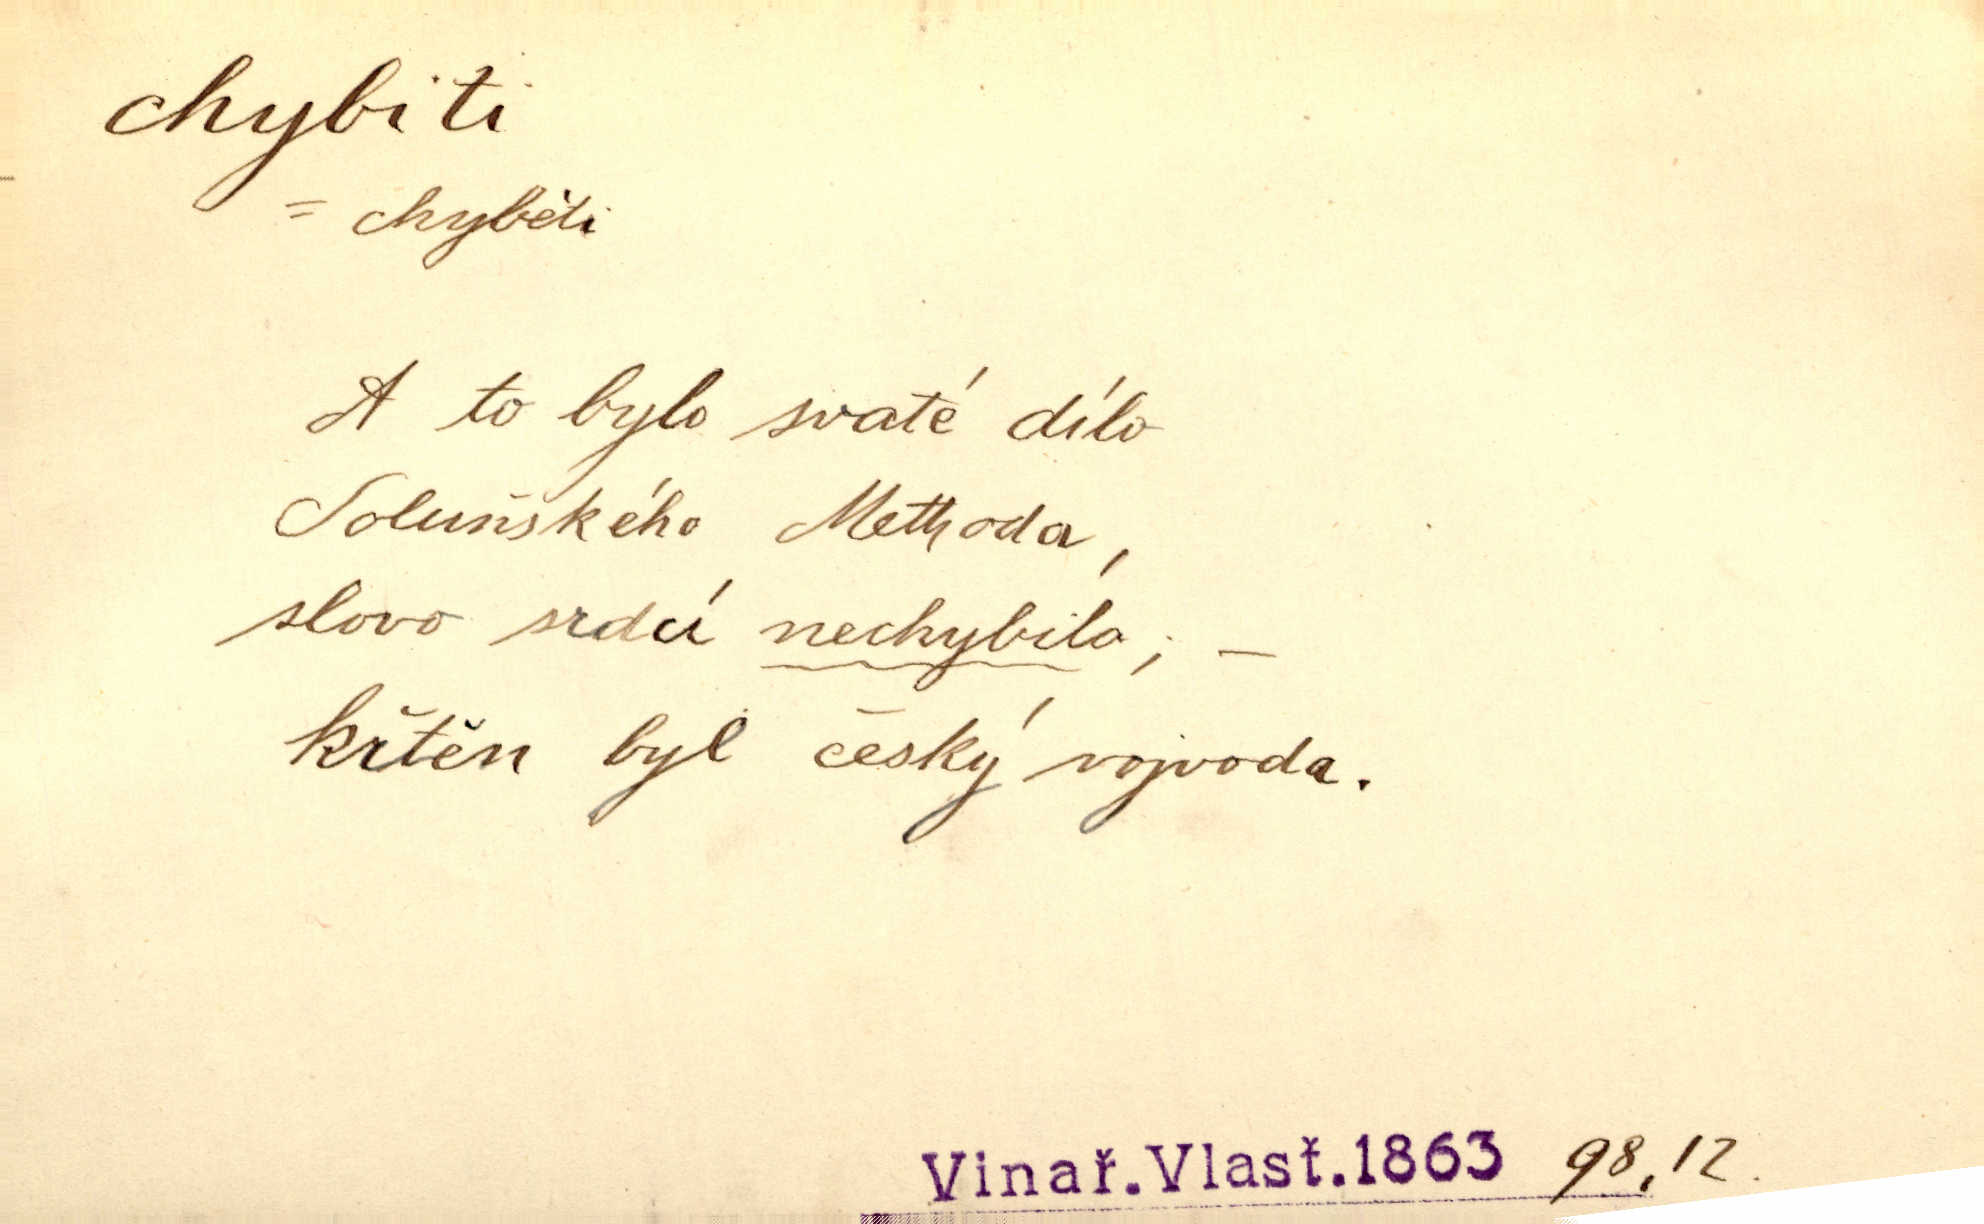 chybiti
= chyběti
A to bylo svaté dílo
Soluňského Methoda,
slovo srdcí nechybílo; —
křtěn byl český vojvoda.
Vinař.Vlasť.1863 98,12.